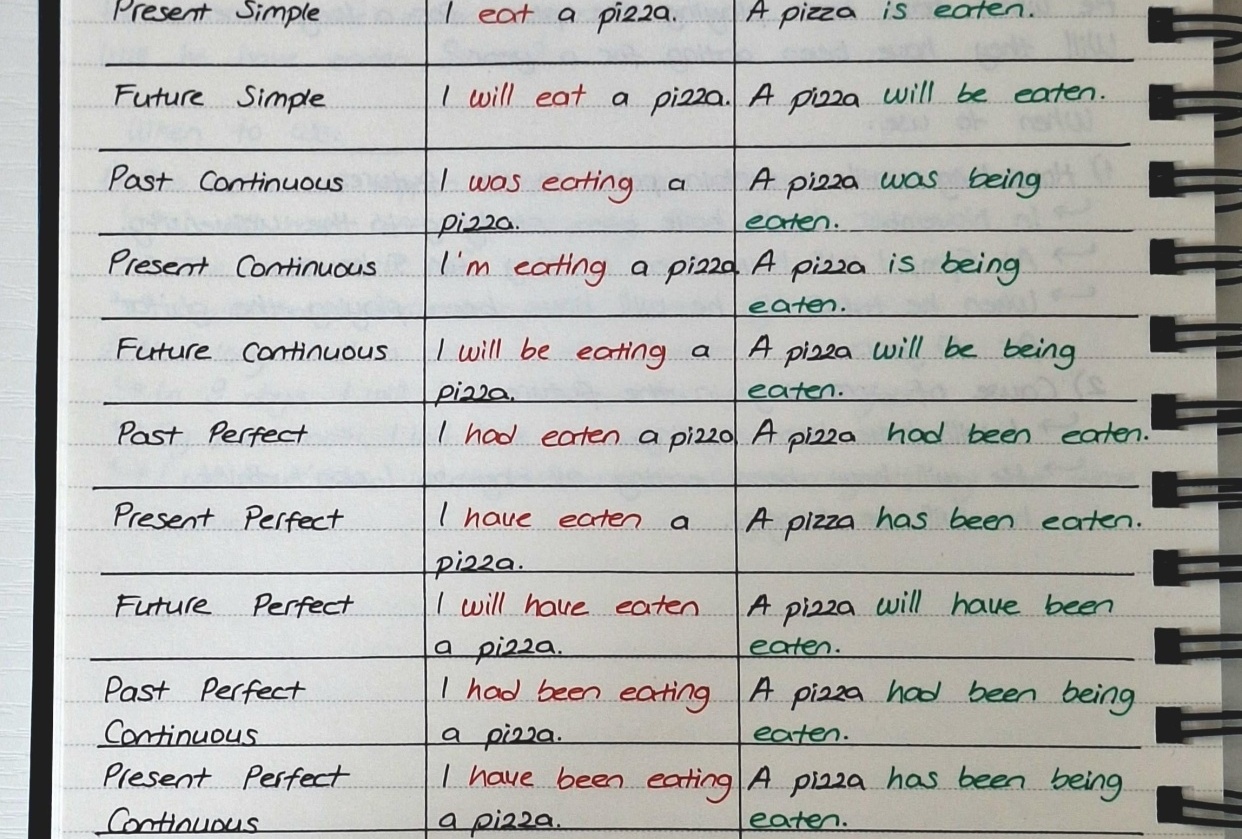 Present Simple I eat a pizza. A pizza is eaten.
Future Simple I will eat a pizza. A pizza will be eaten.
Past Continuous I was eating a A pizza was being
pizza. eaten.
Present Continuous I'm eating a pizza A pizza is being
eaten.
Future Continuous I will be eating a A pizza will be being
pizza. eaten.
Past Perfect I had eaten a pizza A pizza had been eaten.
Present Perfect I have eaten a A pizza has been eaten.
pizza.
Future Perfect I will have eaten A pizza will have been
a pizza. eaten.
Past Perfect I had been eating A pizza had been being
Continuous a pizza. eaten.
Present Perfect I have been eating A pizza has been being
Continuous a pizza. eaten.